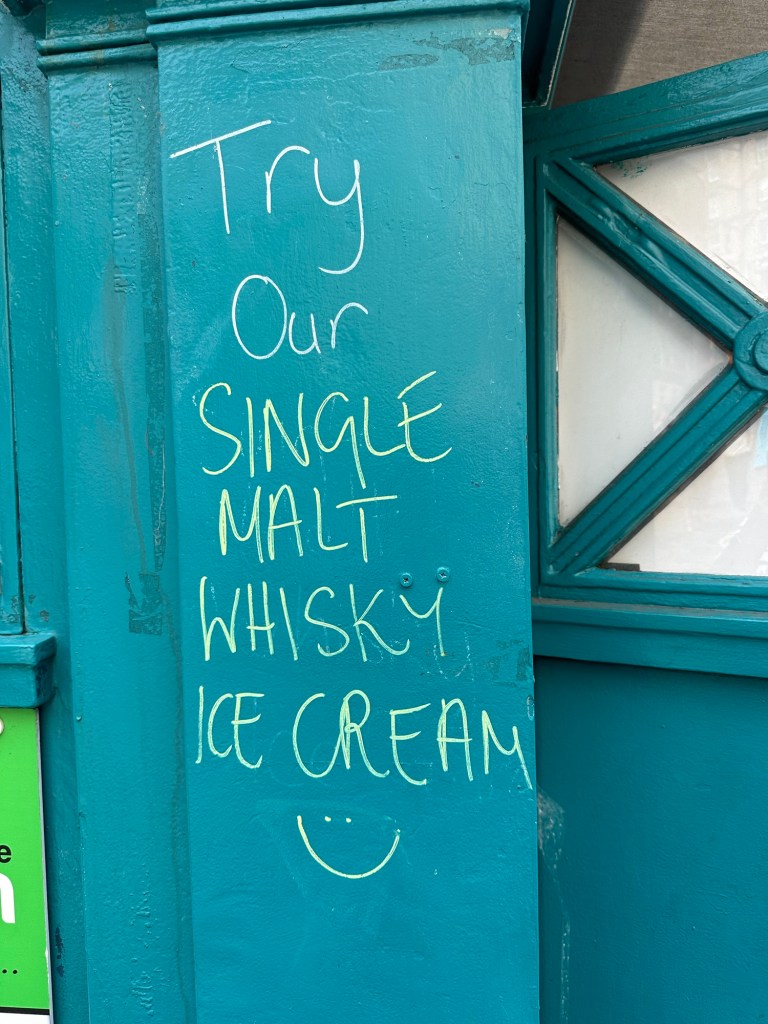 Try
Our
SINGLE
MALT
WHISKY
ICE CREAM